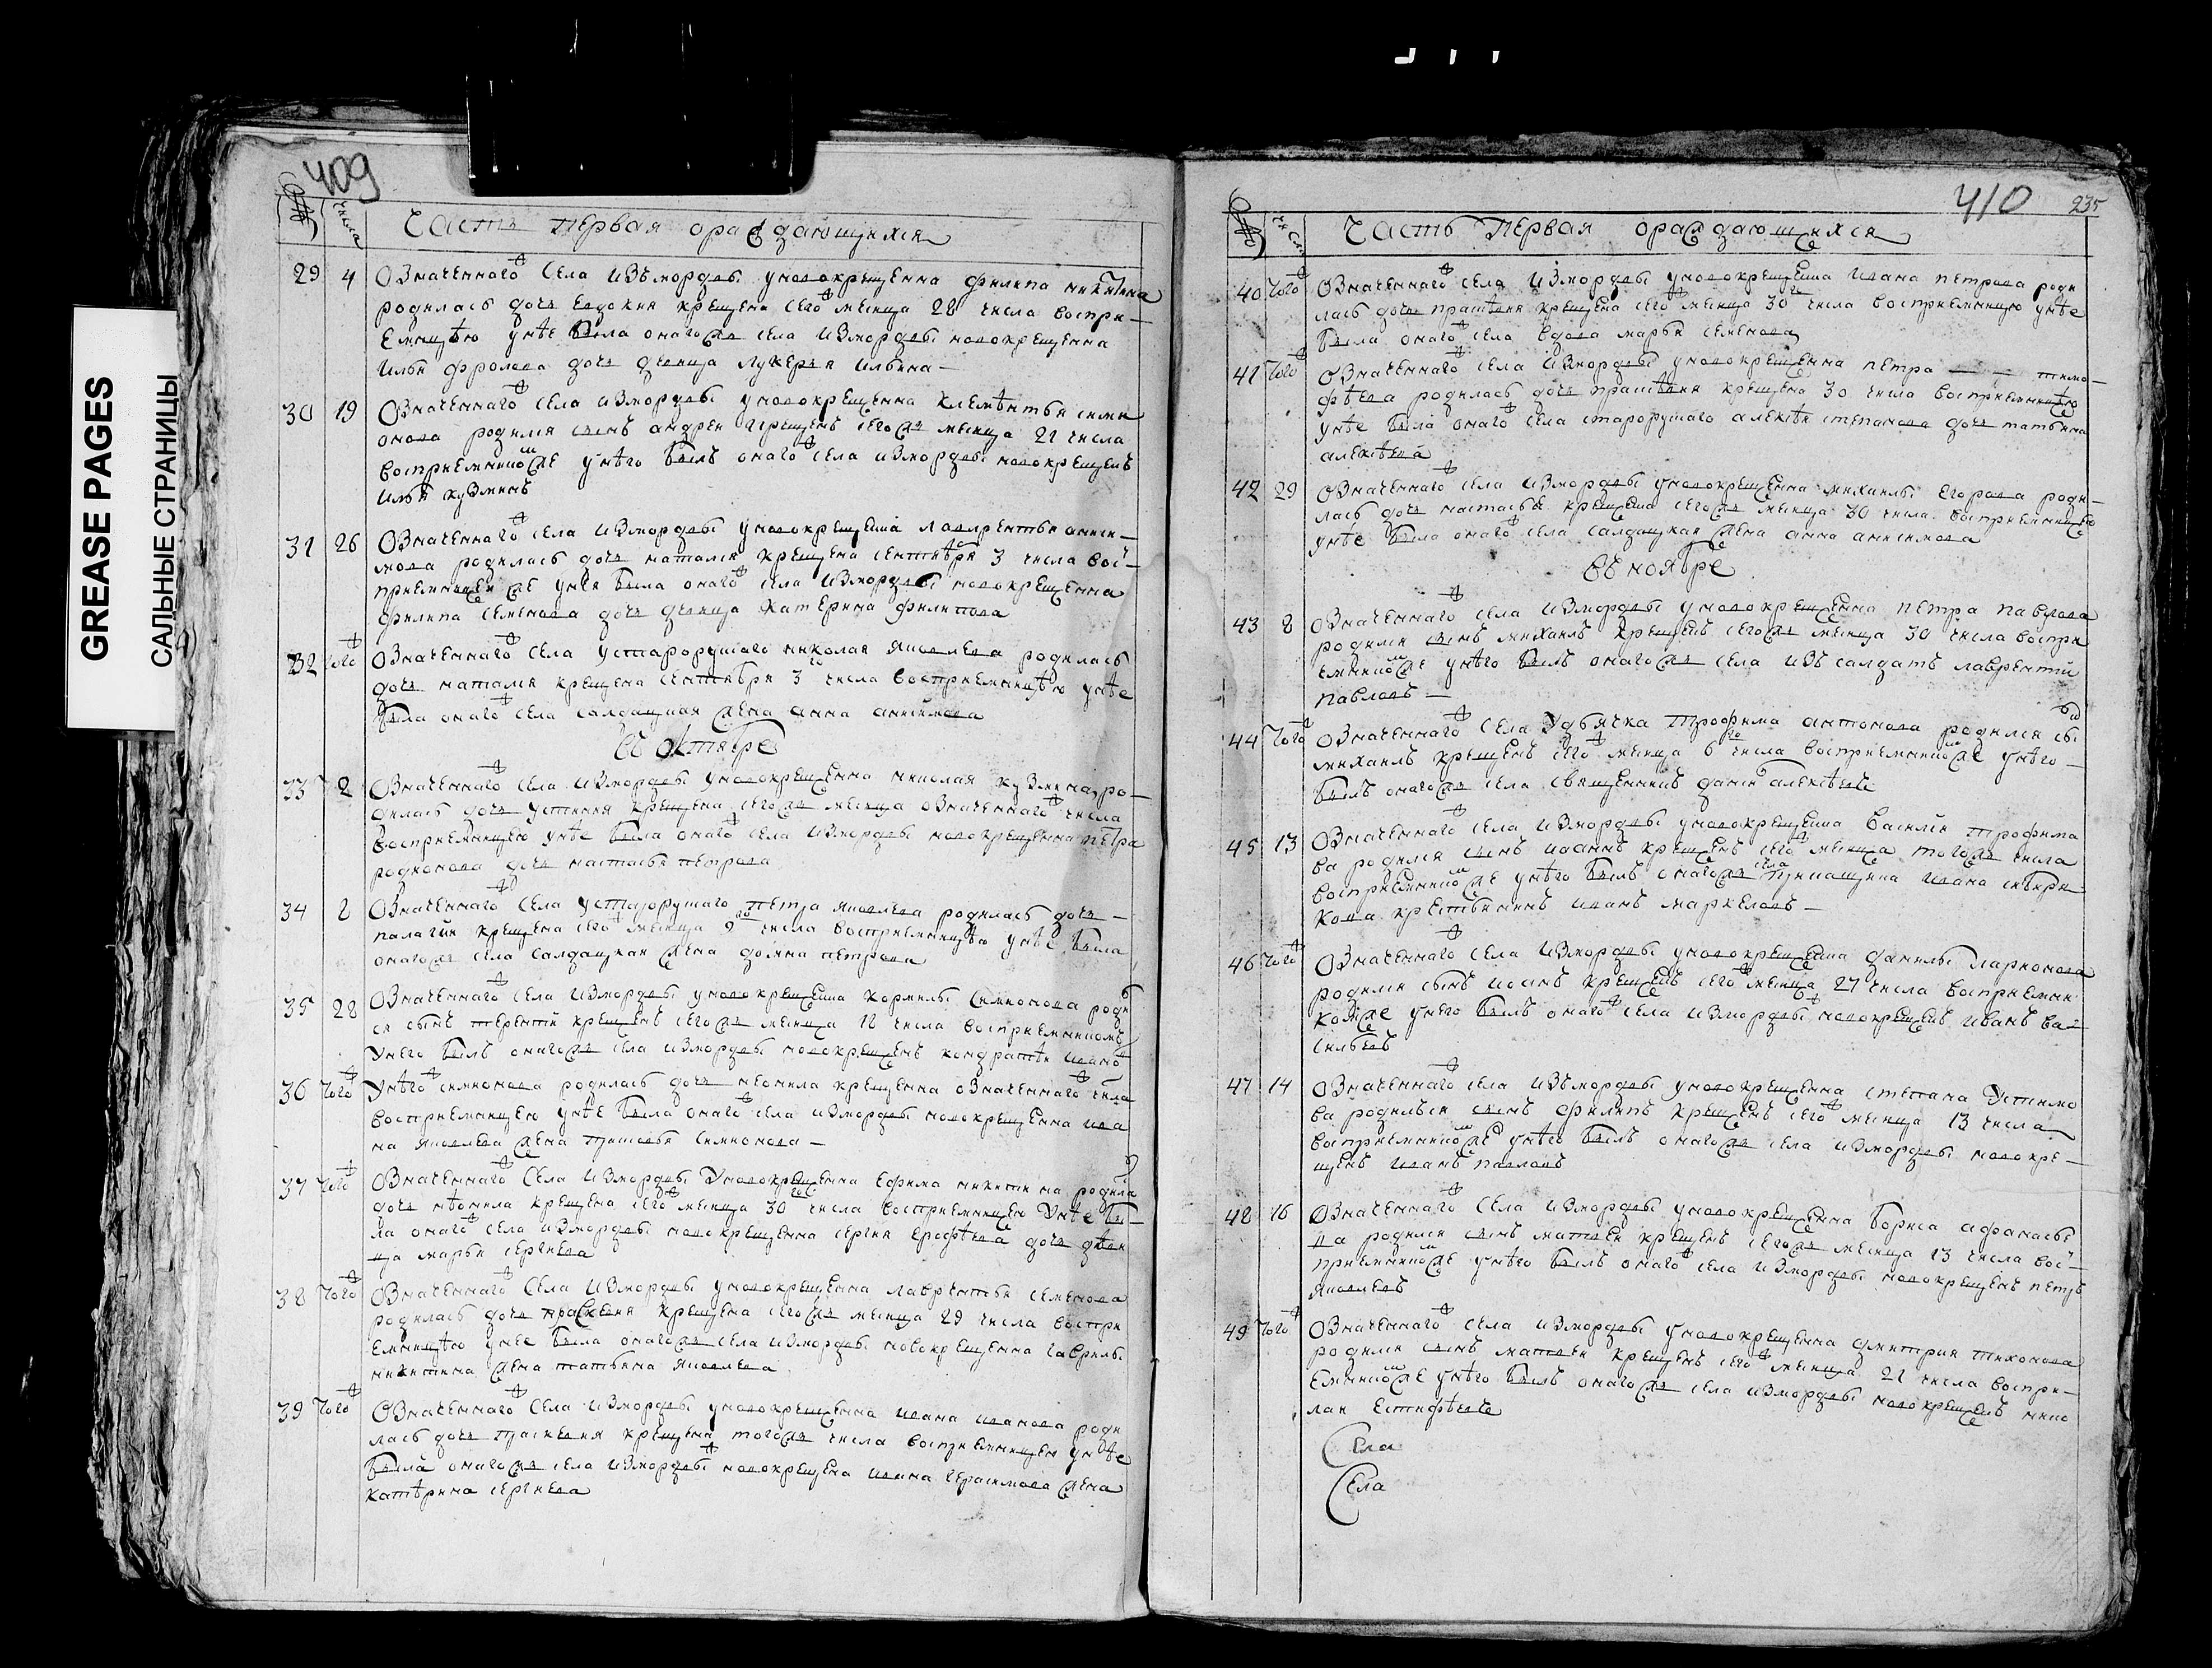 GREASE PAGES
САЛЬНЫЕ СТРАНИЦЫ
409
№ числа Часть первая ораждающихся
29 4 Означенного села изъмордвы уновокрещенна филипа никитина
родилась дочь Евдокия крещена сего месяца 28 числа воспри-
емницъю унѣе была оногожъ села измордвы новокрещенна
Ильи фролова дочь девица лукерья Ильина -
30 19 Означенного села измордвы уновокрещенна клементья сими
онова родился сынъ андреи крещенъ сегожъ месяца 21 числа
восприемникомже унѣго былъ оного села измордвы новокрещенъ
Илья кузминъ
31 26 Означенного села измордвы уновокрещена лаврентья аниси-
мова родилась дочь наталия крещена сентября 3 числа вос-
приемницеи же унея была оного села измордвы новокрещенна
филипа семенова дочь девица катерина филипова
32 того Означенного села устарорускаго николая яковлева родилась
дочь наталия крещена сентября 3 го числа восприемницъю унѣе
была оного села салдацкая жена анна анисимова
въ октябре
33 2 Означенного села измордвы уновокрещенна николая кузминаро-
дилась дочь устиния крещена сегожъ месяца означенного числа
восприемницею унѣе была оного села измордвы новокрещенна петра
родионова дочь настасья петрова
34 8 Означенного села устарорускаго петра яковлева родилась дочь -
палагия крещена сего месяца 9 го числа восприемницъю унѣе была
оногожъ села салдацкая жена домна петрова
35 28 Означенного села измордвы уновокрещенна кормилы симионова роди
ся сынъ терентий крещенъ сегожъ месяца 18 числа восприемникомъ
унего былъ оногожъ села измордвы новокрещенъ кондратеи иванов
36 того Унѣго симионова родилась дочь неонила крещенна означенного числа
восприемницею унѣе была оного села измордвы новокрещенна ива
на яковлева жена прасковья симионова -
37 того Означенного села измордвы уновокрещенна ефима никитина родила
дочь нѣонила крещена сего месяца 30 го числа восприемницею унѣе бы-
ла оного села измордвы новокрещенна сергия ерофѣева дочь дѣви
ца марья сергиева
38 того Означенного села измордвы уновокрещенна лаврентья семенова
родилась дочь праскевия крещена сегожъ месяца 29 числа воспри
емницъю унее была оногожъ села измордвы новокрещенна гаврилы
никитина жена татьяна яковлева
39 того Означенного села измордвы уновокрещенна ивана иванова роди
лась дочь праскевия крещена тогожъ числа восприемницеи унѣе
была оногожъ села измордвы новокрещена ивана герасимова жена
катѣрина сергиева
410 235
№ числа Часть первая ораждающихся
40 того Означенного села измордвы уновокрещенна ивана петрова роди
лась дочь прасковия крещена сего месяца 30 го числа восприемницею унѣе
была оного села вдова марья семенова
41 того Означенного села измордвы уновокрещенна петра — — тимо-
фѣева родилась дочь прасковия крещена 30 числа восприемницею
унѣе была оного села старорускаго алексѣя степанова дочь татьяна
алексѣева
42 29 Означенного села измордвы уновокрещенна михаилы егорова роди-
лась дочь настасья крещена сегожъ месяца 30 числа восприемницею
унѣе была оного села салдацкая жена анна анисимова
въ ноябре
43 8 Означенного села измордвы уновокрещенна петра павлова
родился сынъ михаилъ крещенъ сегожъ месяца 30 числа воспри
емникомже унѣго былъ оногожъ села изъ салдатъ лаврентий
павловъ —
44 того Означенного села удьячка трофима антонова родился сы
михаилъ крещенъ сего месяца 6 го числа восприемникомже унѣго -
былъ оногожъ села священникъ данил алексѣевъ
45 13 Означенного села измордвы уновокрещенна василия трофимо
ва родился сынъ иоаннъ крещенъ сего месяца тогожъ числа
восприемникомже унѣго былъ оногожъ села
кова крестьянинъ иванъ маркеловъ —
46 того Означенного села измордвы уновокрещенна данилы ларионова
родился сынъ иоанъ крещенъ сего месяца 27 числа восприемни
комже унего былъ оного села измордвы новокрещенъ иванъ ва-
сильевъ
47 14 Означенного села изъмордвы уновокрещенна степана устимо
ва родилься сынъ филипъ крещенъ сего месяца 13 числа
восприемникомже унѣго былъ оногожъ села измордвы новокре-
щенъ иванъ павловъ
48 16 Означенного села измордвы уновокрещенна бориса афанасье
ва родился сынъ матвеи крещенъ сегожъ месяца 13 числа вос-
приемникомже унѣго былъ оного села измордвы новокрещенъ петръ
яковлевъ
49 того Означенного села измордвы уновокрещенна дмитрия тихонова
родился сынъ матвеи крещенъ сего месяца 21 числа воспри-
емникомже унѣго былъ оногожъ села измордвы новокрещенъ нико
лаи естифѣевъ
Села
Села